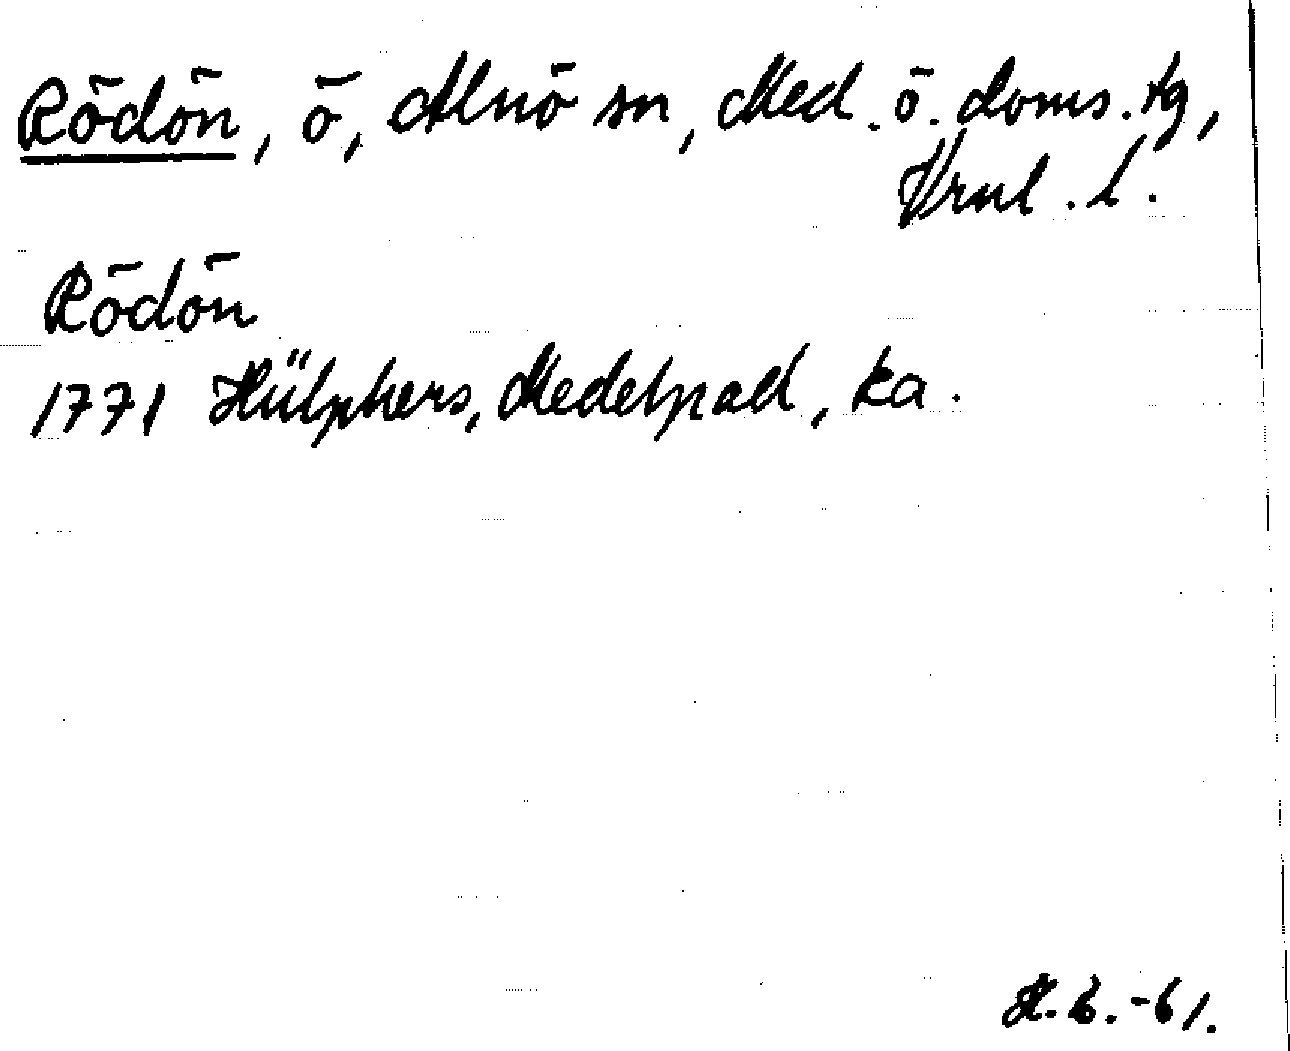 Rödön, ö, Alnö sn, Med. ö. doms. tg,
Vrnl. l.
Rödön
1771 Hülphers, Medelpad, ka.
H.B.-61.